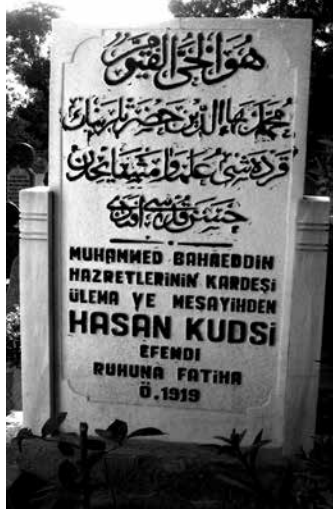 هو الحي القيوم
محمد بهاءالدين حضرتلرينك
قرده شى علما و مشايخدن
حسن قدسى افندى
MUHAMMED BAHAEDDİN
HAZRETLERİNİN KARDEŞİ
ÜLEMA VE MESAYİHDEN
HASAN KUDSİ
EFENDİ
RUHUNA FATİHA
Ö.1919